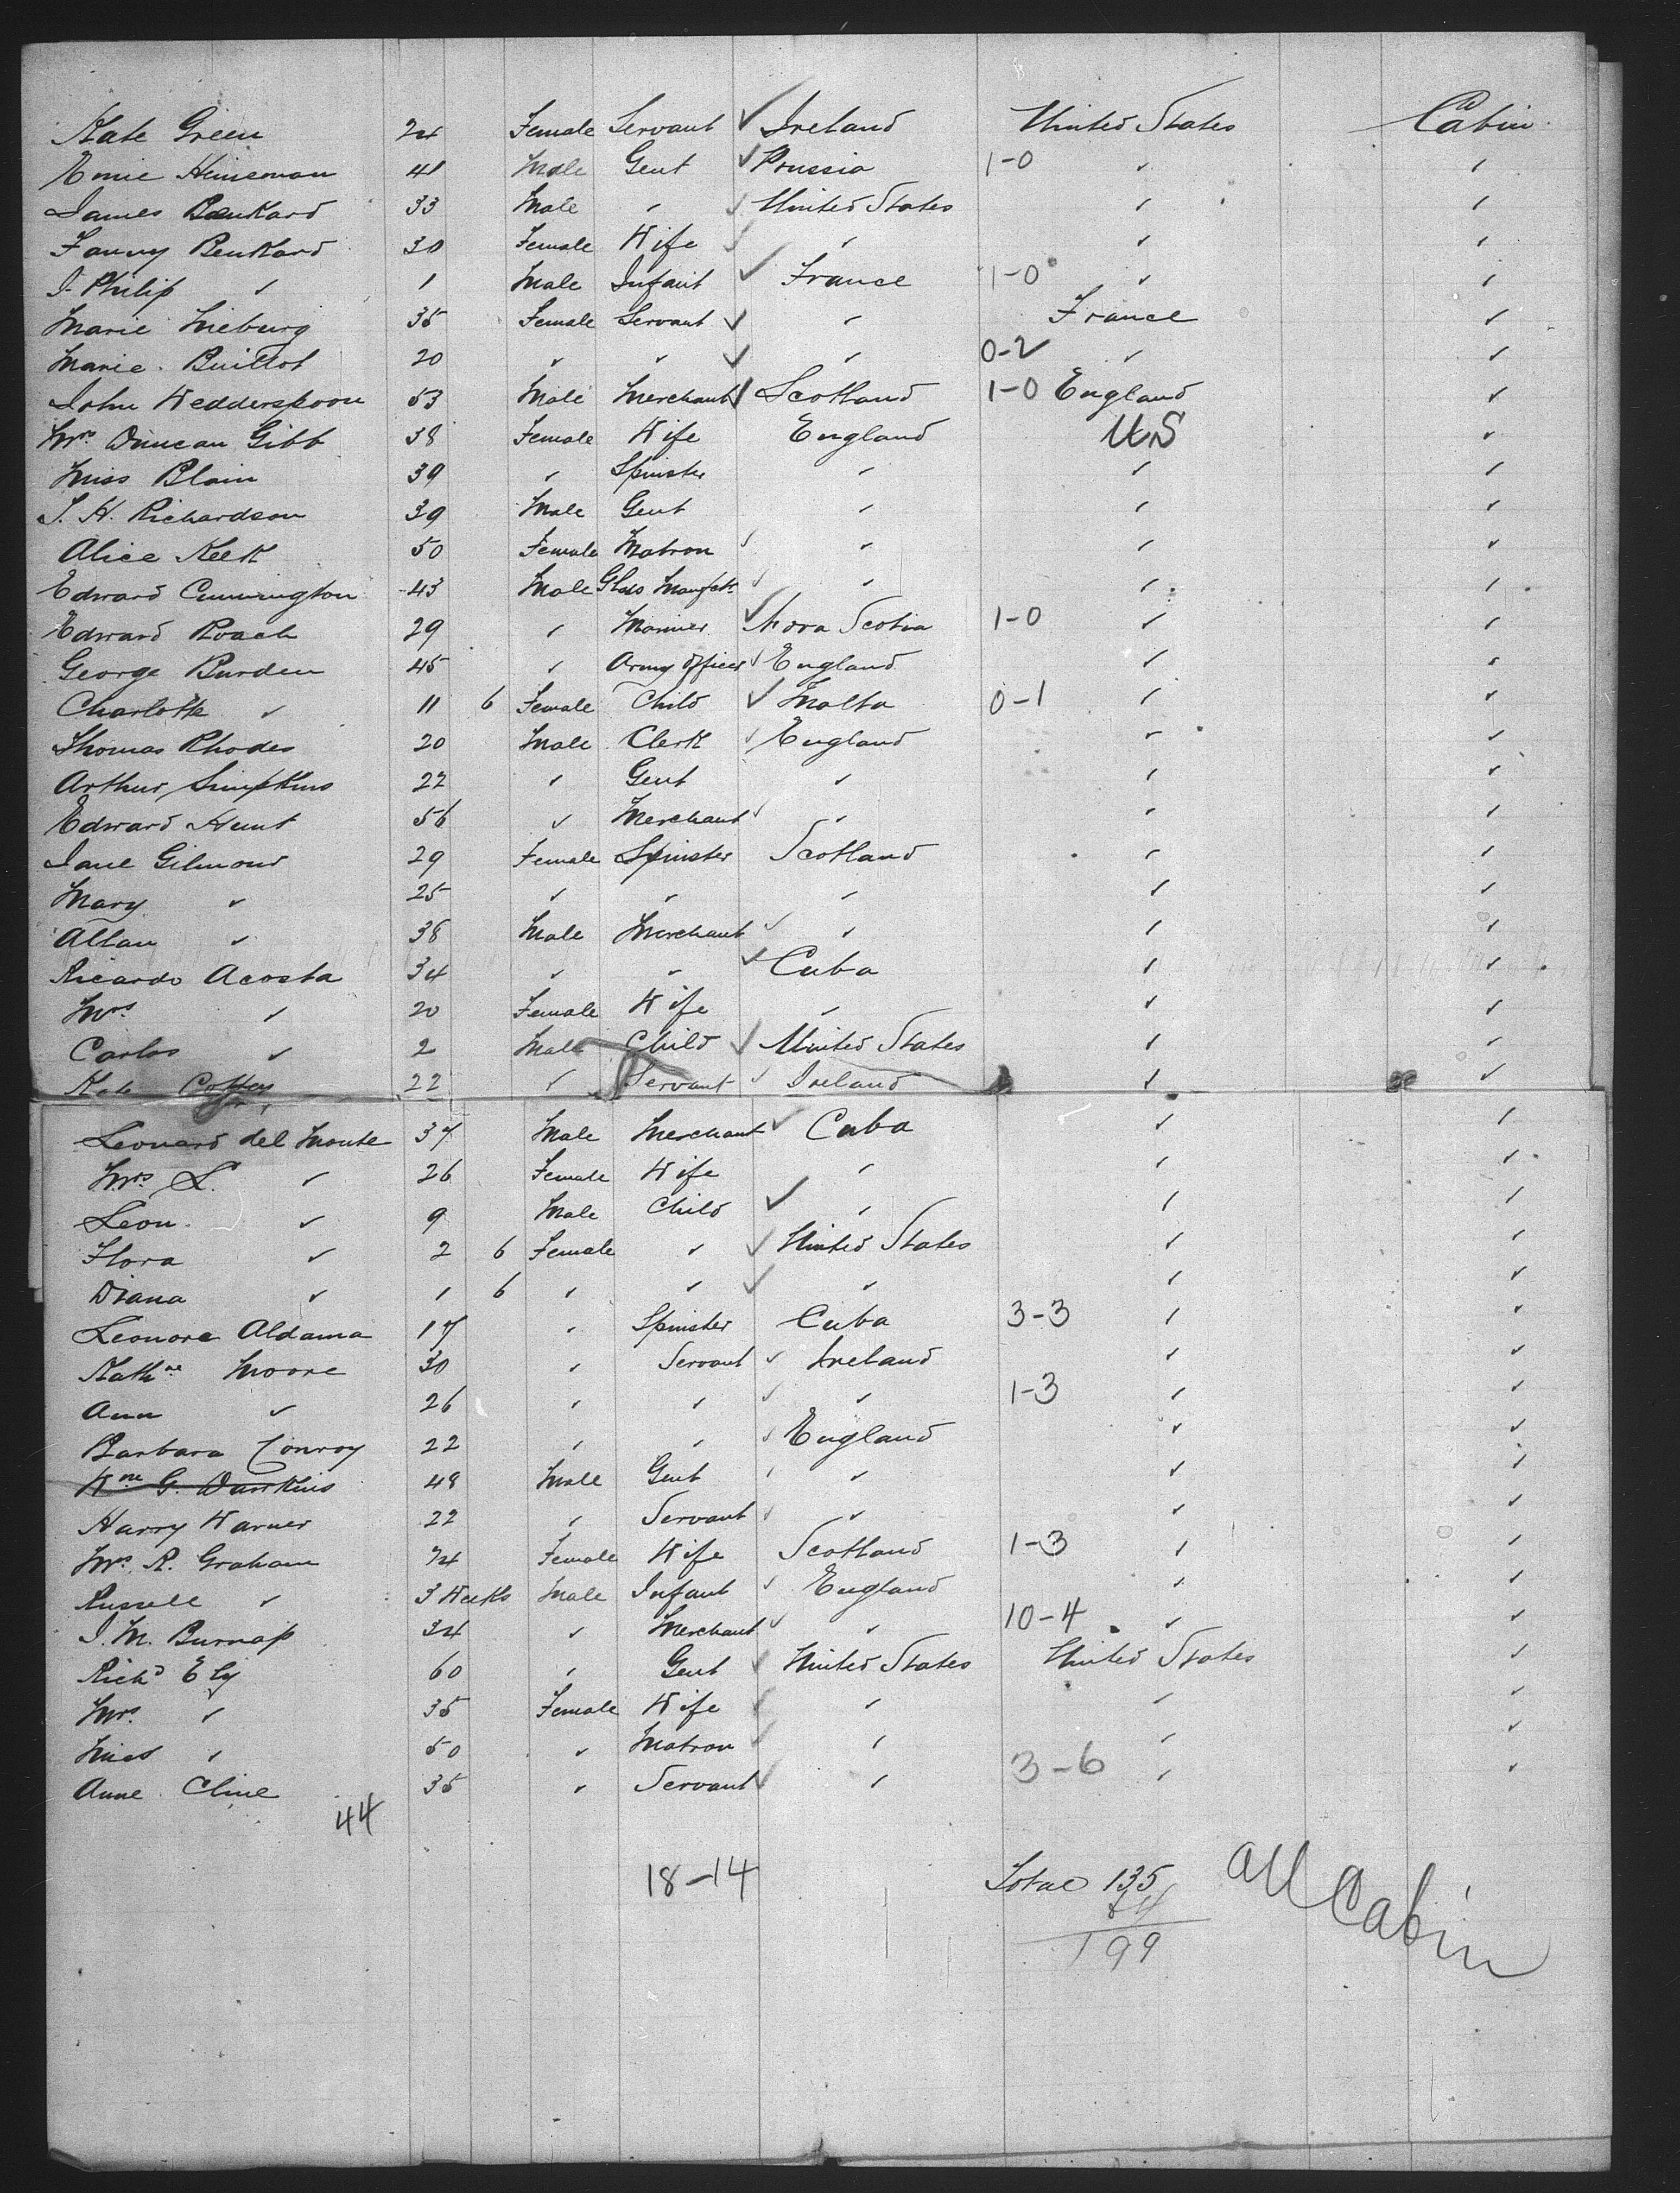 Kate Green 24 Female Servant ✓ Ireland United States Cabin
Emie Heineman 41 Male Gent ✓ Prussia 1-0 ✓ ✓
James Benkard 33 Male ✓ ✓ United States ✓ ✓
Fanny Benkard 30 Female Wife ✓ ✓ ✓ ✓
J. Philip ✓ 1 Male Infant ✓ France 1-0 ✓ ✓
Marie Lieburg 35 Female Servant ✓ ✓ France ✓
Marie Buillot 20 ✓ ✓ ✓ ✓ 0-2 ✓ ✓
John Wedderspoon 53 Male Merchant ✓ Scotland 1-0 England ✓
Mrs Duncan Gibb 38 Female Wife England US ✓
Miss Blain 39 ✓ Spinster ✓ ✓ ✓
J. H. Richardson 39 Male Gent ✓ ✓ ✓
Alice Keek 50 Female Matron ✓ ✓ ✓ ✓
Edward Cunnington 43 Male Glass Manfctr ✓ ✓ ✓ ✓
Edward Roach 29 ✓ Mariner ✓ Nova Scotia 1-0 ✓ ✓
George Burden 45 ✓ Army Officer ✓ England ✓ ✓
Charlotte ✓ 11 6 Female Child ✓ Malta 0-1 ✓ ✓
Thomas Rhodes 20 Male Clerk ✓ England ✓ ✓
Arthur Simpkins 22 ✓ Gent ✓ ✓ ✓
Edward Hunt 56 ✓ Merchant ✓ ✓ ✓ ✓
Jane Gilmour 29 Female Spinster Scotland ✓ ✓
Mary ✓ 25 ✓ ✓ ✓ ✓ ✓
Allan ✓ 38 Male Merchant ✓ ✓ ✓ ✓
Ricardo Acosta 34 ✓ ✓ ✓ Cuba ✓ ✓
Mrs ✓ 20 Female Wife ✓ ✓ ✓
Carlos ✓ 2 Male Child ✓ United States ✓ ✓
Kate Coffey 22 ✓ Servant ✓ Ireland ✓ ✓
Leonard del Monte 37 Male Merchant ✓ Cuba ✓ ✓
Mrs L. ✓ 26 Female Wife ✓ ✓ ✓
Leon ✓ 9 Male Child ✓ ✓ ✓ ✓
Flora ✓ 2 6 Female ✓ ✓ United States ✓ ✓
Diana ✓ 1 6 ✓ ✓ ✓ ✓ ✓ ✓
Leonore Aldama 17 ✓ Spinster Cuba 3-3 ✓ ✓
Kathne Moore 30 ✓ Servant ✓ Ireland ✓ ✓
Ann ✓ 26 ✓ ✓ ✓ ✓ 1-3 ✓ ✓
Barbara Conroy 22 ✓ ✓ ✓ England ✓ ✓
Wm G. Dawkins 48 Male Gent ✓ ✓ ✓ ✓
Harry Warner 22 ✓ Servant ✓ ✓ ✓ ✓
Mrs R. Graham 24 Female Wife Scotland 1-3 ✓ ✓
Russell ✓ 3 Weeks Male Infant ✓ England ✓ ✓
J. M. Burnap 34 ✓ Merchant ✓ ✓ 10-4 ✓ ✓
Richd Ely 60 ✓ Gent ✓ United States United States ✓
Mrs ✓ 35 Female Wife ✓ ✓ ✓ ✓
Miss ✓ 50 ✓ Matron ✓ ✓ ✓ ✓
Anne Cline 35 ✓ Servant ✓ ✓ 3-6 ✓ ✓
44
18-14 Total 135 All Cabin
64
199